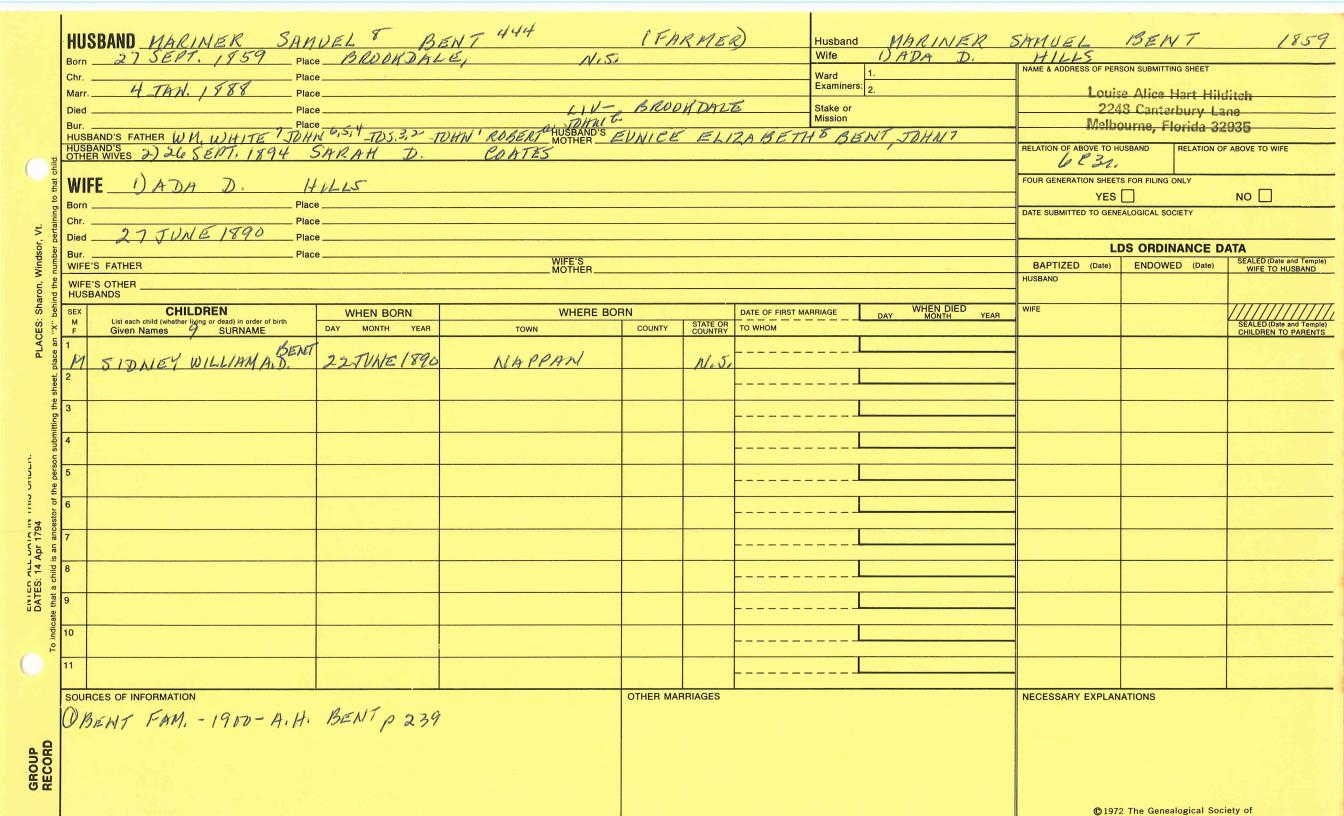 HUSBAND MARINER SAMUEL 8 BENT 444 (FARMER)
Born 27 SEPT. 1859 Place BROOKDALE, N.S.
Chr. Place
Marr. 4 JAN. 1888 Place
Died Place LIV- BROOKDALE
Bur. Place
HUSBAND'S FATHER WM. WHITE 7 JOHN 6,5,4 JOS. 3,2 JOHN 1 ROBERT HUSBAND'S MOTHER EUNICE ELIZABETH 8 BENT, JOHN 7
JOHN 6
HUSBAND'S OTHER WIVES 2) 26 SEPT. 1894 SARAH D. COATES
Husband MARINER SAMUEL BENT 1859
Wife 1) ADA D. HILLS
Ward Examiners: 1.
2.
Stake or Mission
NAME & ADDRESS OF PERSON SUBMITTING SHEET
Louise Alice Hart Hilditch
2248 Canterbury Lane
Melbourne, Florida 32935
RELATION OF ABOVE TO HUSBAND RELATION OF ABOVE TO WIFE
6C3r.
FOUR GENERATION SHEETS FOR FILING ONLY
YES NO
DATE SUBMITTED TO GENEALOGICAL SOCIETY
WIFE 1) ADA D. HILLS
Born Place
Chr. Place
Died 27 JUNE 1890 Place
Bur. Place
WIFE'S FATHER WIFE'S MOTHER
WIFE'S OTHER HUSBANDS
LDS ORDINANCE DATA
BAPTIZED (Date) ENDOWED (Date) SEALED (Date and Temple) WIFE TO HUSBAND
HUSBAND
WIFE
SEALED (Date and Temple) CHILDREN TO PARENTS
SEX M F
CHILDREN
List each child (whether living or dead) in order of birth
Given Names 9 SURNAME
WHEN BORN
DAY MONTH YEAR
WHERE BORN
TOWN COUNTY STATE OR COUNTRY
DATE OF FIRST MARRIAGE
TO WHOM
WHEN DIED
DAY MONTH YEAR
1 M SIDNEY WILLIAM A.D. BENT 22 JUNE 1890 NAPPAN N.S.
2
3
4
5
6
7
8
9
10
11
SOURCES OF INFORMATION
① BENT FAM. - 1900 - A.H. BENT p 239
OTHER MARRIAGES
NECESSARY EXPLANATIONS
©1972 The Genealogical Society of
PLACES: Sharon, Windsor, Vt.
ENTER ALL DATA IN THIS ORDER:
DATES: 14 Apr 1794
To indicate that a child is an ancestor of the person submitting the sheet, place an "X" behind the number pertaining to that child.
GROUP RECORD